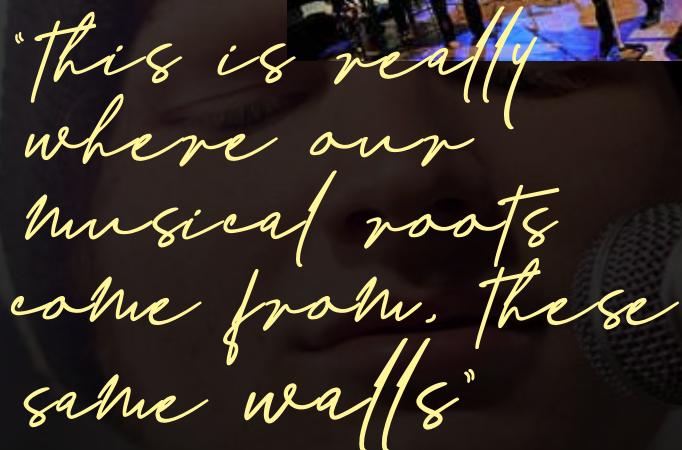 "This is really
where our
musical roots
come from, these
same walls"